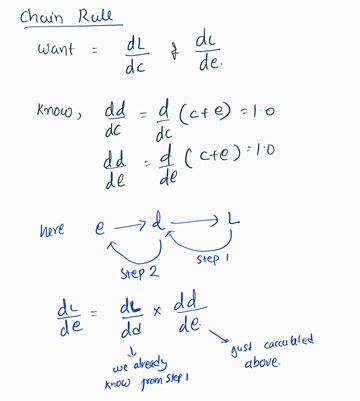 Chain Rule
Want = dL/dc & dL/de.
Know, dd/dc = d/dc (c+e) = 1.0
dd/de = d/de (c+e) = 1.0
here e → d → L
Step 2 Step 1
dL/de = dL/dd × dd/de.
we already know from Step 1
just calculated above.